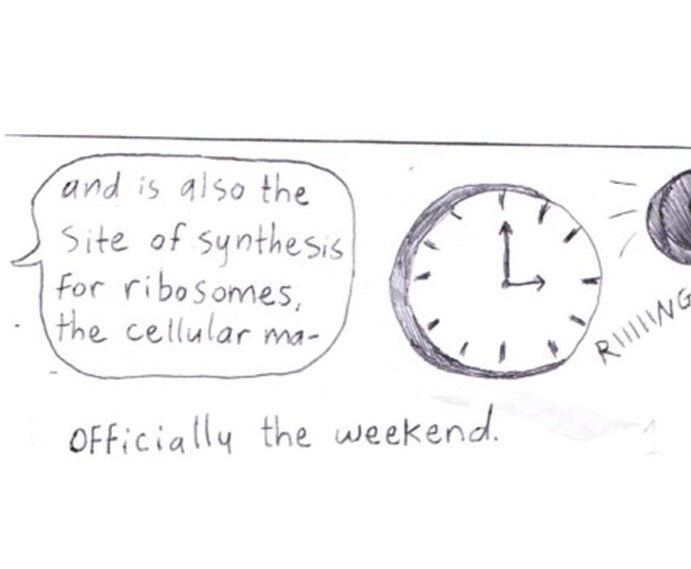 and is also the
site of synthesis
for ribosomes,
the cellular ma-
RIIIIING
Officially the weekend.